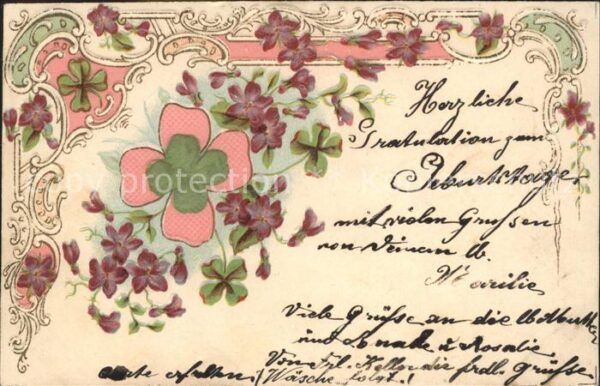 Herzliche
Gratulation zum
Geburtstage
mit vielen Grüssen
von Deinem lb.
Viele Grüsse an die lb Mutter
und & Rosalie
Von Frl. die frdl. Grüsse
erhalten! Wäsche folgt!